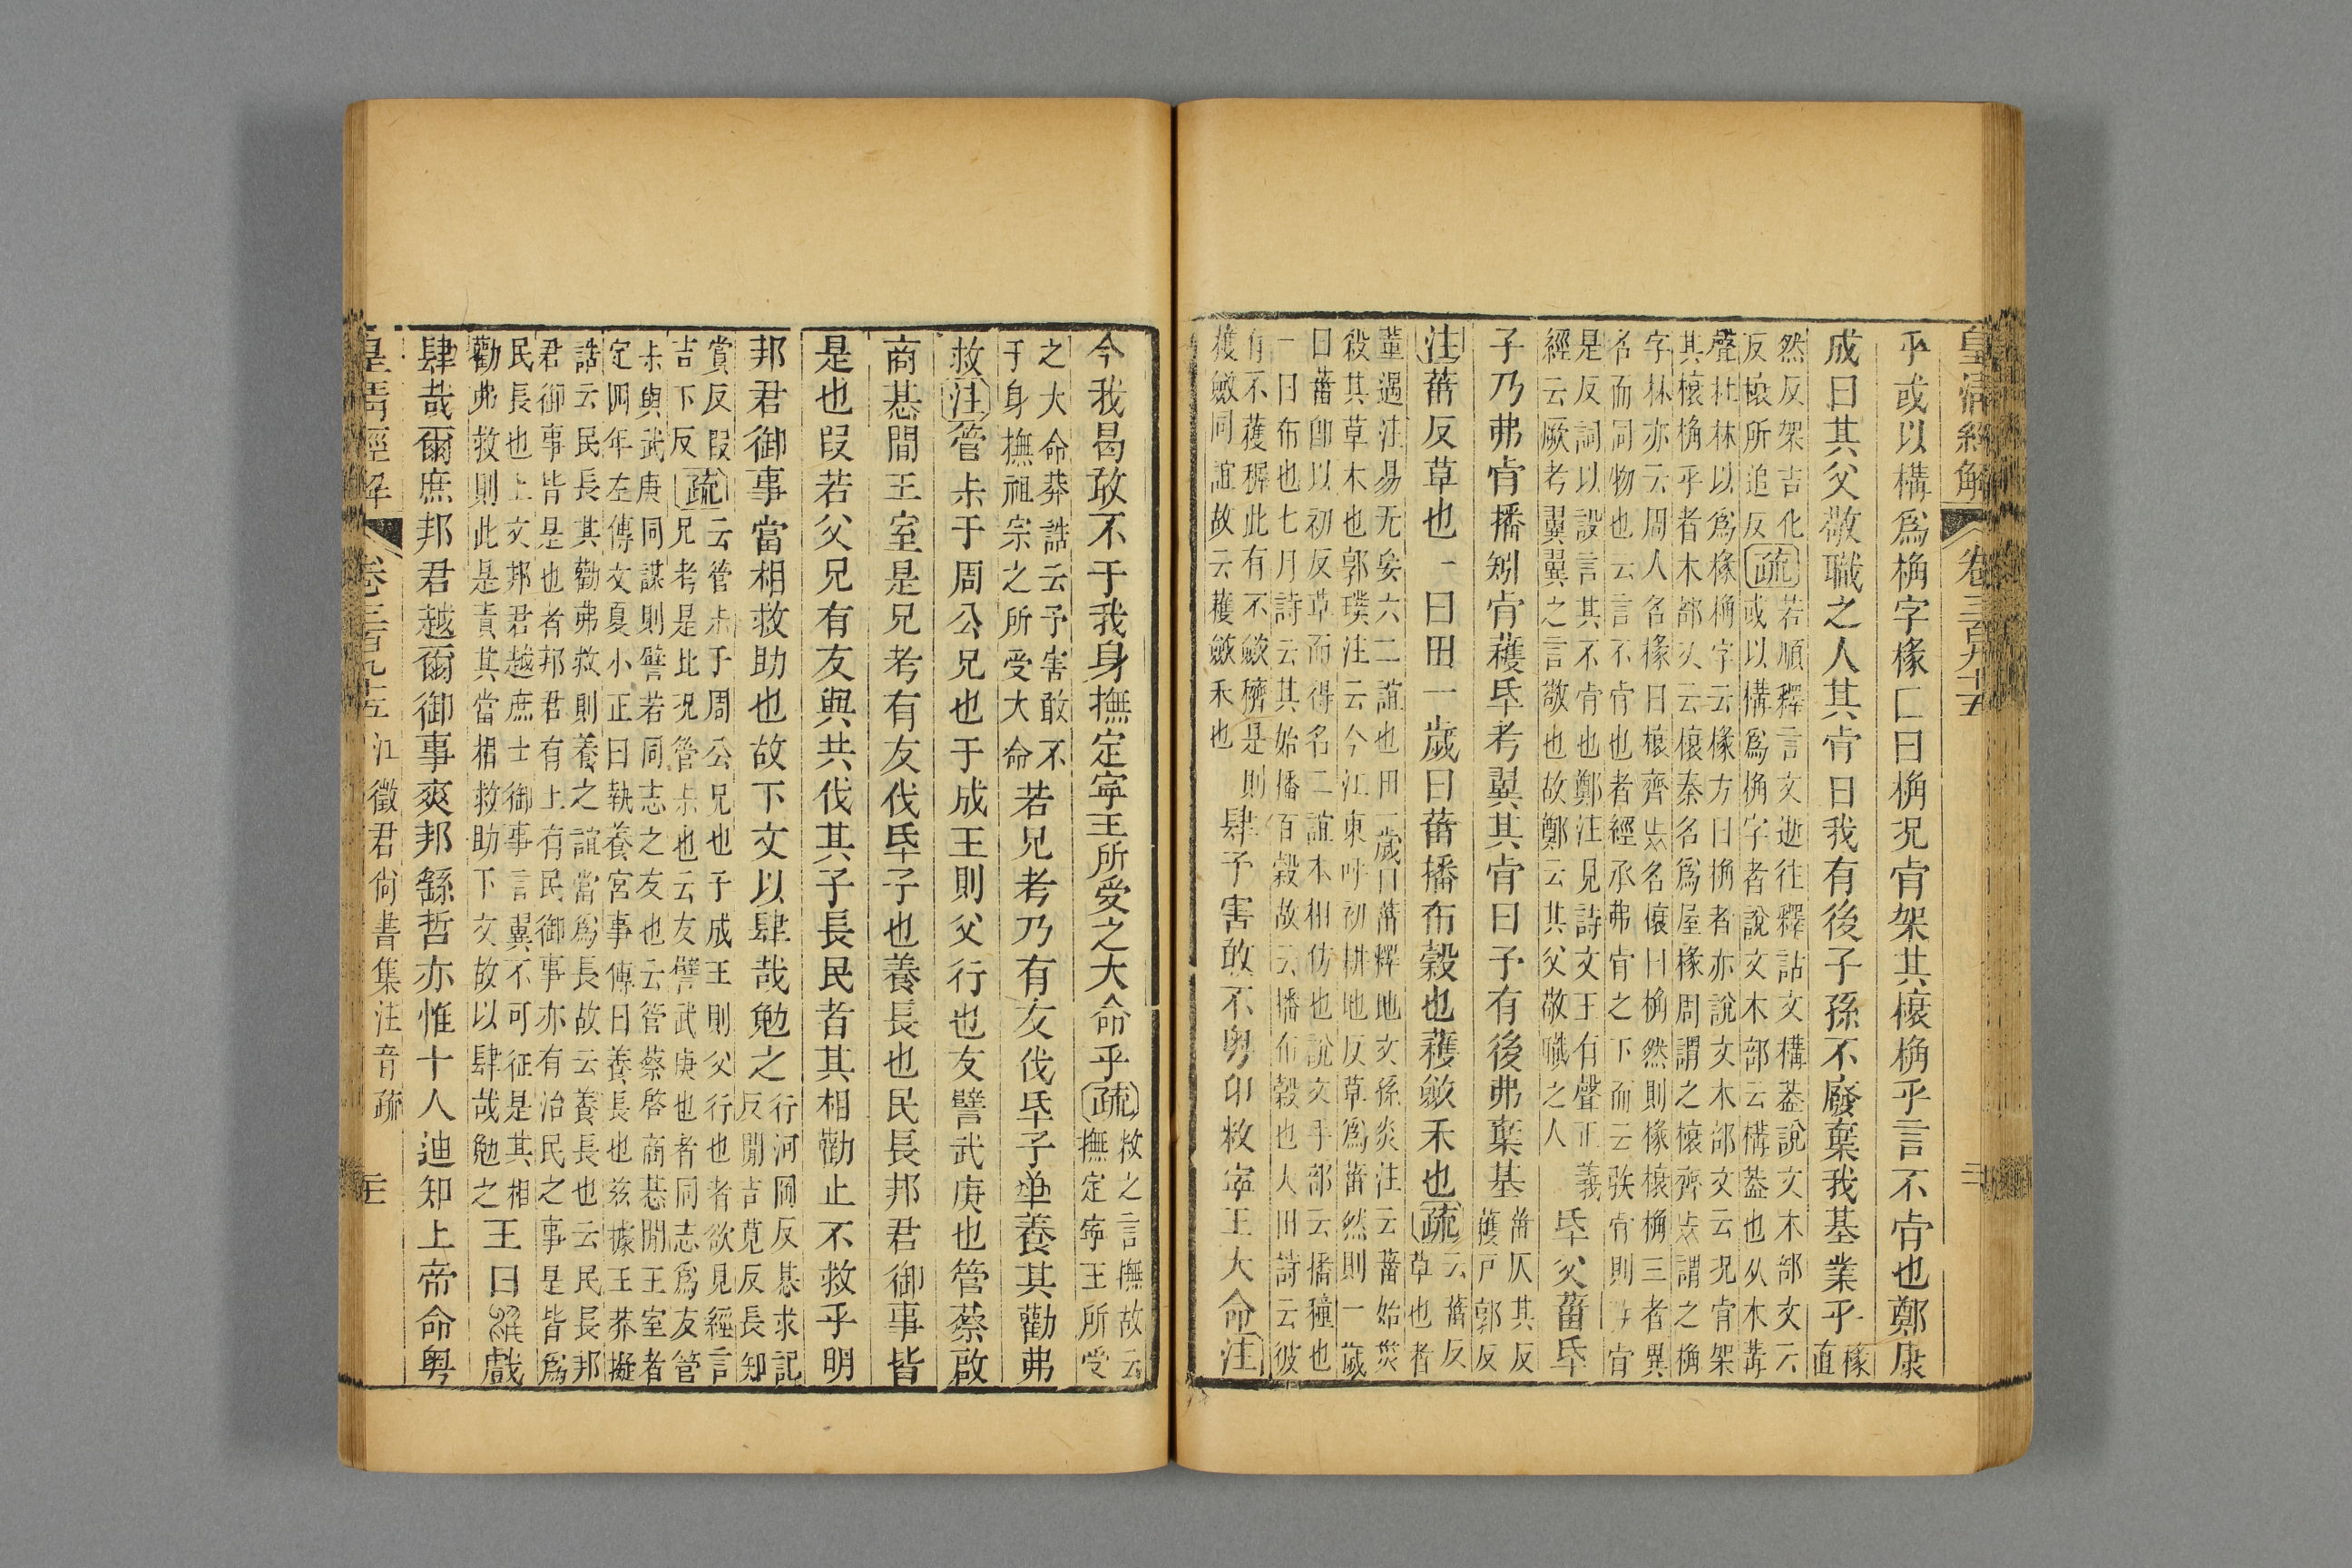 皇清經解 卷三百九十五 二
乎或以構爲桷字椽匚曰桷況肯架其榱桷乎言不肯也鄭康
成曰其父敬職之人其肯曰我有後子孫不廢棄我基業乎椽
直
然反架吉化
反榱所追反疏若順釋言文逝往釋詁文構葢說文木部文云
或以構爲桷字者說文木部云構葢也从木冓
聲杜林以爲椽桷字云椽方曰桷者亦說文木部文云況肯架
其榱桷乎者木部又云榱秦名爲屋椽周謂之榱齊魯謂之桷
字林亦云周人名椽曰榱齊魯名榱曰桷然則椽榱桷三者異
名而同物也云言不肯也者經承弗肯之下而云矧肯則肯
是反詞以設言其不肯也鄭注見詩文王有聲正義
經云厥考翼翼之言敬也故鄭云其父敬職之人
厥父菑厥
子乃弗肯播矧肯穫厥考翼其肯曰予有後弗棄基菑仄其反
穫戸郭反
注菑反草也一曰田一歲曰菑播布穀也穫斂禾也疏云菑反
草也者
董遇注易无妄六二誼也田一歲曰菑釋地文孫炎注云菑始災
殺其草木也郭璞注云今江東呼初耕地反草爲菑然則一歲
曰菑卽以初反草而得名二誼本相仿也說文手部云播穜也
一曰布也七月詩云其始播百穀故云播布穀也大田詩云彼
有不穫穉此有不斂穧是則
穫斂同誼故云穫斂禾也
肆予害敢不粤卬敉寍王大命注
今我曷敢不于我身撫定寍王所受之大命乎疏敉之言撫故云
撫定寍王所受
之大命莽誥云予害敢不
于身撫祖宗之所受大命
若兄考乃有友伐厥子單養其勸弗
救注管叔于周公兄也于成王則父行也友譬武庚也管蔡啟
商惎間王室是兄考有友伐厥子也養長也民長邦君御事皆
是也叚若父兄有友與共伐其子長民者其相勸止不救乎明
邦君御事當相救助也故下文以肆哉勉之行河岡反惎求記
反閒吉莧反長知
賞反叚
吉下反疏云管叔于周公兄也于成王則父行也者欲見經言
兄考是比況管叔也云友譬武庚也者同志爲友管
叔與武庚同謀則譬若同志之友也云管蔡啓商惎閒王室者
定四年左傳文夏小正曰執養宮事傳曰養長也茲據王莽擬
誥云民長其勸弗救則養之誼當爲長故云養長也云民長邦
君御事皆是也者邦君有土有民御事亦有治民之事是皆爲
民長也上文邦君越庶士御事言翼不可征是其相
勸弗救則此是責其當相救助下文故以肆哉勉之
王曰烏戲
肆哉爾庶邦君越爾御事爽邦繇哲亦惟十人迪知上帝命粤
皇清經解 卷三百九十五 江徵君尚書集注音疏 三